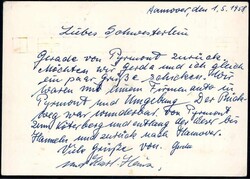 Hannover, den 1.5.1958
Liebes Schwesterlein
Gerade von Pyrmont zurück,
möchten wir Gerda und ich gleich
ein paar Grüße schicken. Wir
waren mit Ihrem Firmenauto in
Pyrmont und Umgebung. Der Rück-
weg war wunderbar. Von Pyrmont
zum Köterberg und entlang der Weser bis
Hameln und zurück nach Hannover.
Viele Grüße von: Gerda
und Karl Heinz